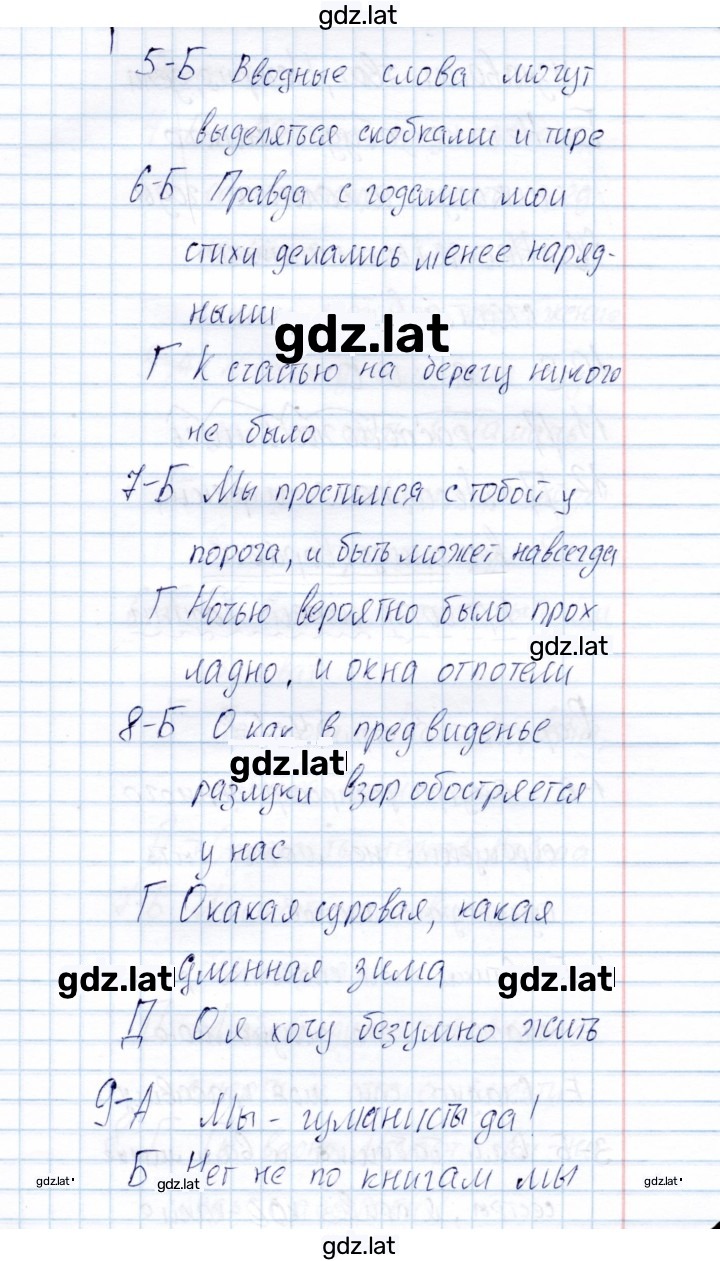 gdz.lat
5-Б Вводные слова могут
выделяться скобками и тире
6-Б Правда с годами мои
стихи делались менее наряд-
ными
gdz.lat
Г К счастью на берегу никого
не было
7-Б Мы простимся с тобой у
порога, и быть может навсегда
Г Ночью вероятно было прох
gdz.lat
ладно, и окна отпотели
8-Б О как в предвиденье
gdz.lat
разлуки взор обостряется
у нас
Г О какая суровая, какая
gdz.lat длинная зима gdz.lat
Д О я хочу безумно жить
9-А Мы - гуманисты да!
gdz.lat Б gdz.lat Нет не по книгам мы gdz.lat
gdz.lat